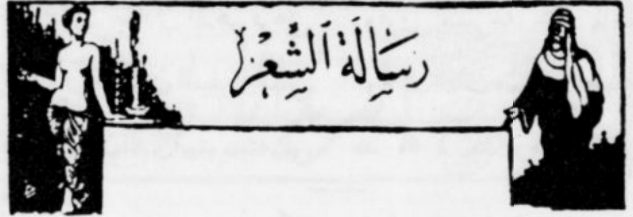 رِسَالَةُ الشِّعْرُ